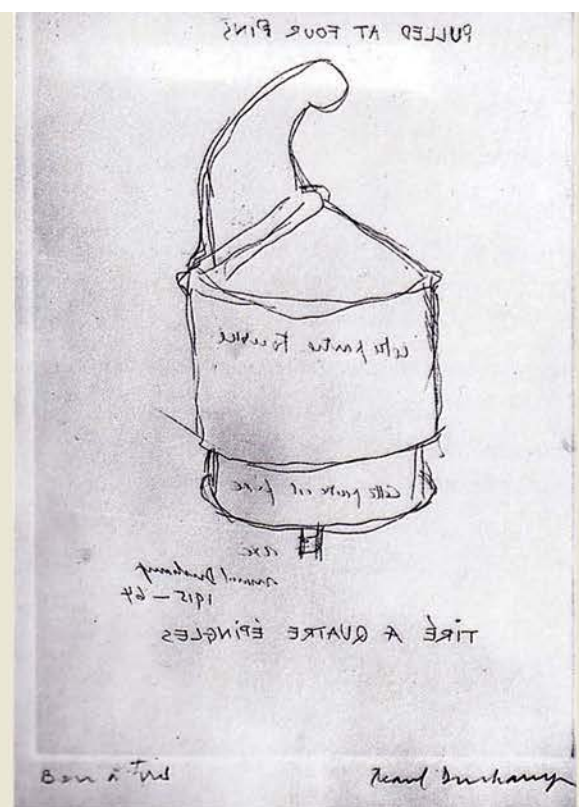 PULLED AT FOUR PINS
cette partie tourne
cette partie est fixe
axe
Marcel Duchamp
1915 - 64
TIRÉ A QUATRE ÉPINGLES
Bon à tirer
Marcel Duchamp